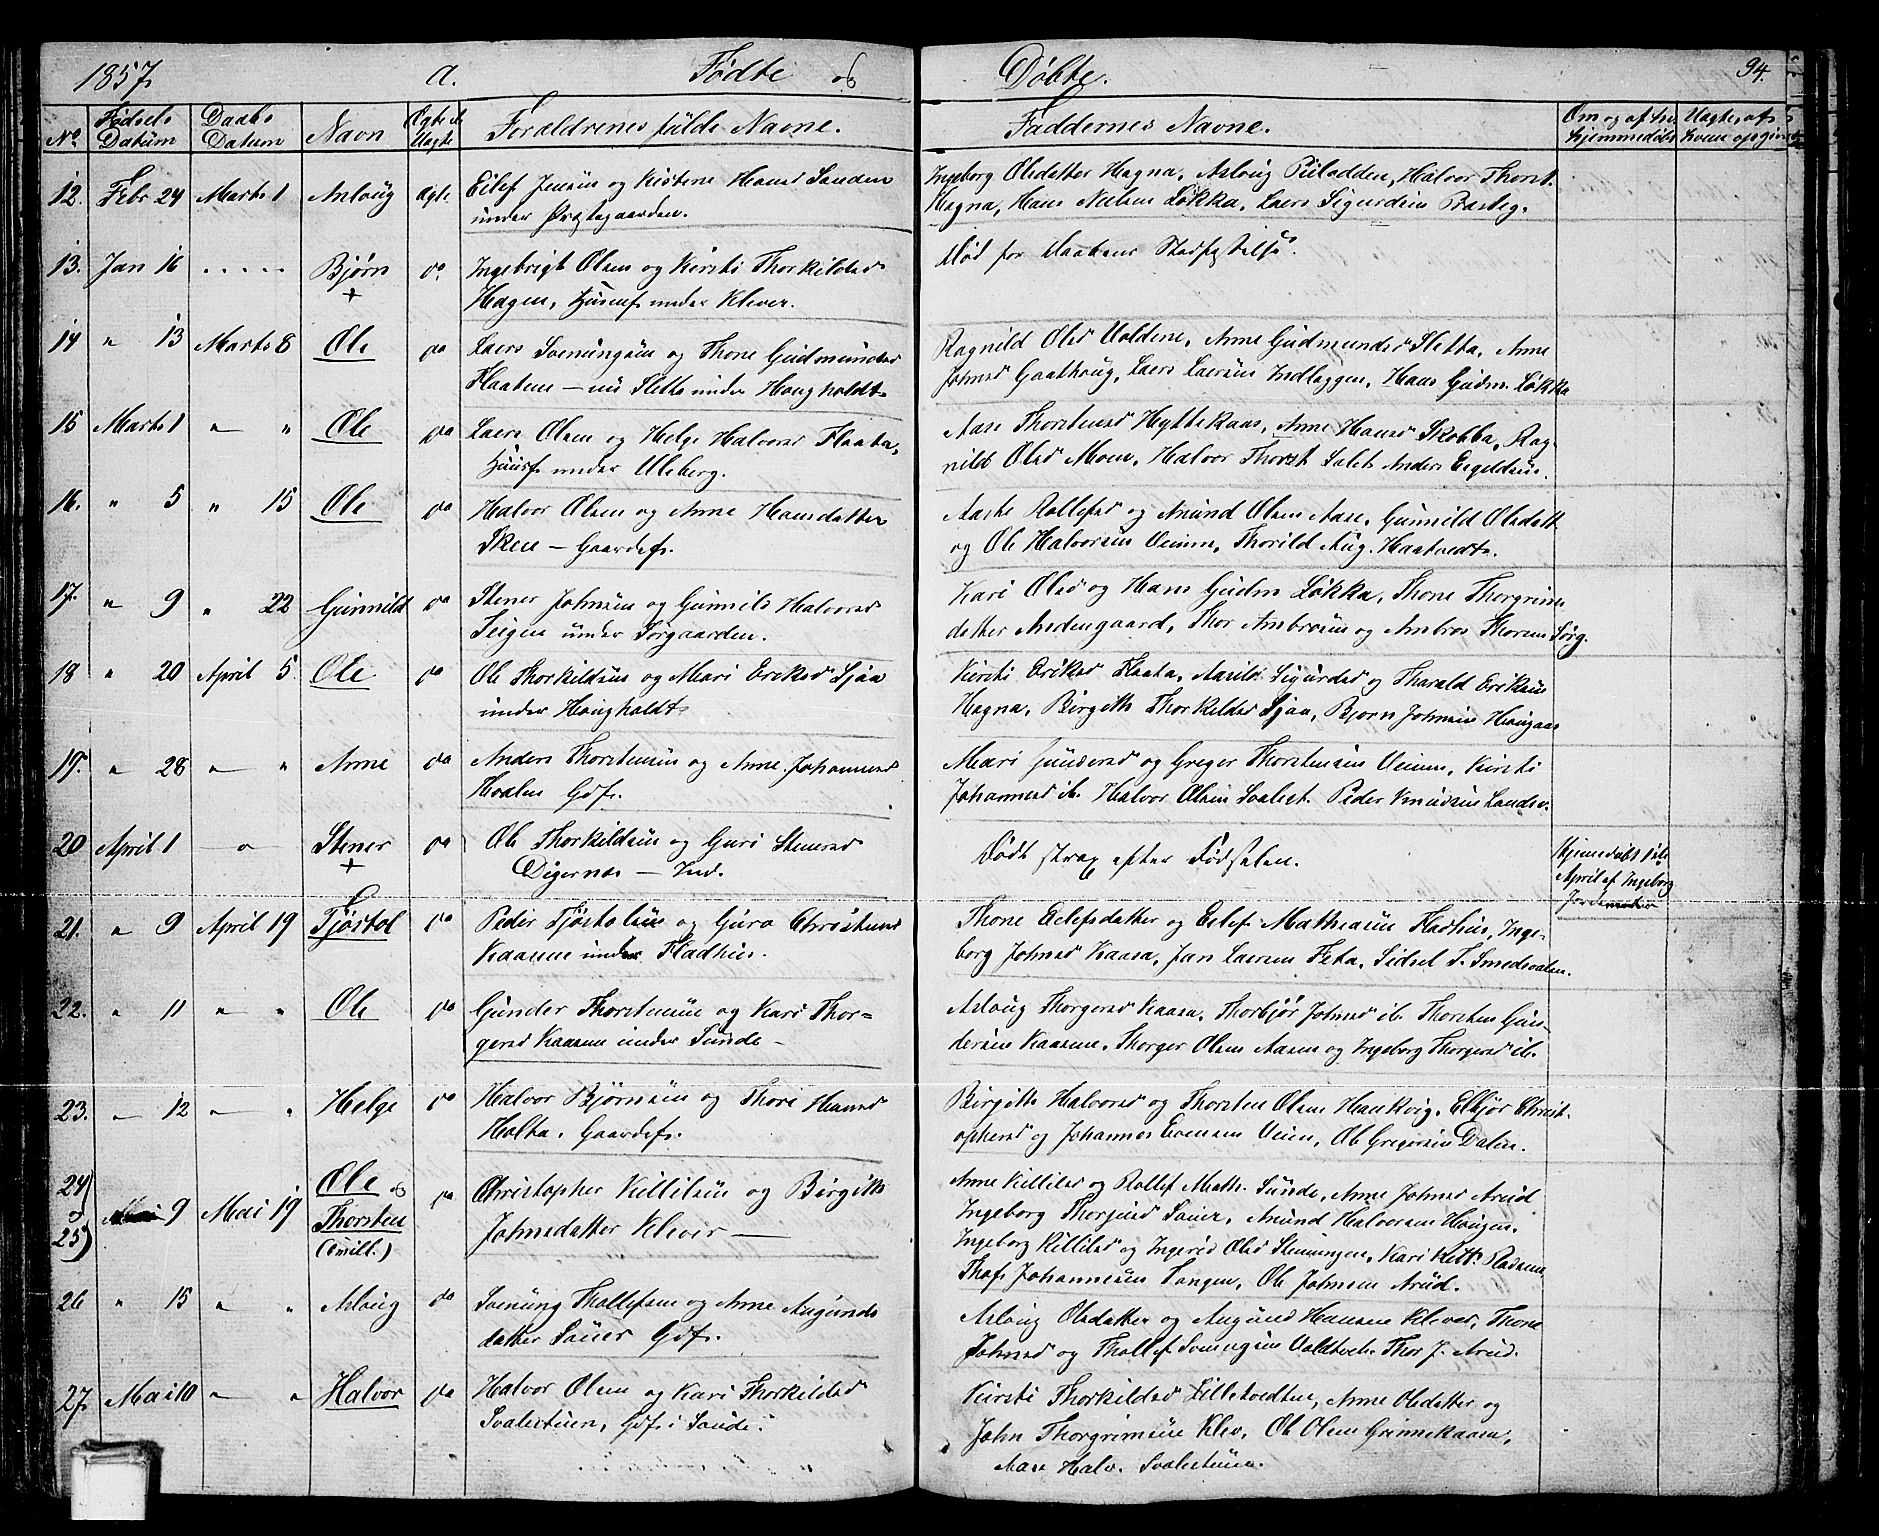 1857 a. Fødte og Døbte. 94.
No. Fødsels Datum Daabs Datum Navn Ægte el. Uægte Forældrenes fulde Navne. Faddernes Navne. Om og af hv. hjemmedøbt Uægte, af hvem opgivet
12. Febr 24 Marts 1 Aslaug ægte. Eilef Jensen og Kistene Hansd Sanden
under Præstegaarden.
Ingeborg Olsdatter Hagna, Aslaug Pilodden, Halvor Thorst.
Hagna, Hans Nielsen Løkka, Laers Sigurdsen Præsteg.
13. Jan 16 ..... Bjørn + do. Ingebrigt Olsen og Kirsti Thorkildsd
Hagen, Huusf. under Klever.
Død for Daabens Stadfæstelse.
14 " 13 Marts 8 Ole do Laers Svenungsen og Thone Gudmundsd
Flaatene – nu Sletta under Haugholdt
Ragnild Olsd Valdene, Anne Gudmundsd Sletta, Anne
Johnsd Gaathaug, Laers Laersen Indlæggen, Hans Gudm. Løkka
15 Marts 1 " " Ole do Laers Olsen og Helge Halvorsd Flaata,
Huusf. under Uleberg.
Aase Thorstensd Hyttekaas, Anne Hansd Skobba, Rag-
nild Olsd Moen, Halvor Thorst Salet Anders Eegeldsen.
16. " 5 " 15 Ole do Halvor Olsen og Anne Hansdatter
Skeie – Gaardef.
Aaste Rollefsd og Anund Olsen Aase, Gunnild Olsdatt
og Ole Halvorsen Veium, Thorild Aug. Haatvedt.
17. " 9 " 22 Gunnild do Stener Johnsen og Gunnild Halvorsd
Teigen under Sørgaarden.
Kari Olsd og Hans Gudm Løkka, Thone Thorgrims
datter Andengaard, Thor Ambrosen og Ambros Thorsen Sørg.
18 " 20 April 5. Ole do Ole Thorkildsen og Mari Eriksd Sjaa
under Haugholdt
Kirsti Eriksd Flaata, Aasild Sigurdsd og Tharald Eriksen
Hagna, Birgith Thorkildsd Sjaa, Bjørn Johnsen Haugaas
19. " 28 " " Anne do Anders Thorstensen og Anne Johannesd
Hvalen Gdf.
Mari Gundersd og Greger Thorstensen Veium, Kirsti
Johannesd ib. Halvor Olsen Svalest. Peder Knudsen Landsv.
20 April 1 — " Stener + do Ole Thorkildsen og Guri Stenersd
Digernæs – Ind.
Dødt strax efter Fødselen.
Hjemmedøbt 1ste
April af Ingeborg
Jordemoder
21. " 9 April 19 Tjøstol do Peder Tjøstolsen og Guro Christensd
Kaasene under Fladhus.
Thone Eilefsdatter og Eilef Mathiasen Fladhus, Inge-
borg Johnsd Kaasa, Jan Laersen Feta, Sidsel T. Smedsdalen.
22. " 11 " " Ole do Gunder Thorstensen og Kari Thor=
gersd Kaasene under Sunde –
Aslaug Thorgersd Kaasa, Thorbjør Johnsd ib. Thorsten Gun-
dersen Kaasene, Thorger Olsen Aasen og Ingeborg Thorgersd ib.
23. " 12 " " Helge do Halvor Bjørnsen og Thore Hansd
Holta, Gaardef.
Birgith Halvorsd og Thorsten Olsen Haukvig, Elbjør Christ-
ophersd og Johannes Evensen Veium, Ole Gregersen Dalen.
24 25 9 Mai 19 Ole og Thorsten (Tvill.) do Christopher Killilsen og Birgith
Johnsdatter Klever —
Anne Killilsd og Rollef Math. Sunde, Anne Johnsd Arud
Ingeborg Thorjusd Sauer, Anund Halvorsen Haugen,
Ingeborg Killilsd og Ingerid Olsd Skinningen, Kari Kitt. Rodsene
Thof. Johannesen Tangen, Ole Johnsen Arud.
26 " 15 " " Aslaug do Svenung Thollefsen og Anne Augunds
datter Sauer Gdf.
Aslaug Olsdatter og Augund Hansen Klever, Thone
Johnsd og Thollef Svenungsen Valdtvet. Thor J. Arud.
27. Mai 10 " " Halvor do Halvor Olsen og Kari Thorkildsd
Svalestuen, Gdf. i Saude.
Kirsti Thorkildsd Lilletvedten, Anne Olsdatter og
John Thorgrimsen Klev, Ole Olsen Grinnekaasen,
Aase Halv. Svalestuen.